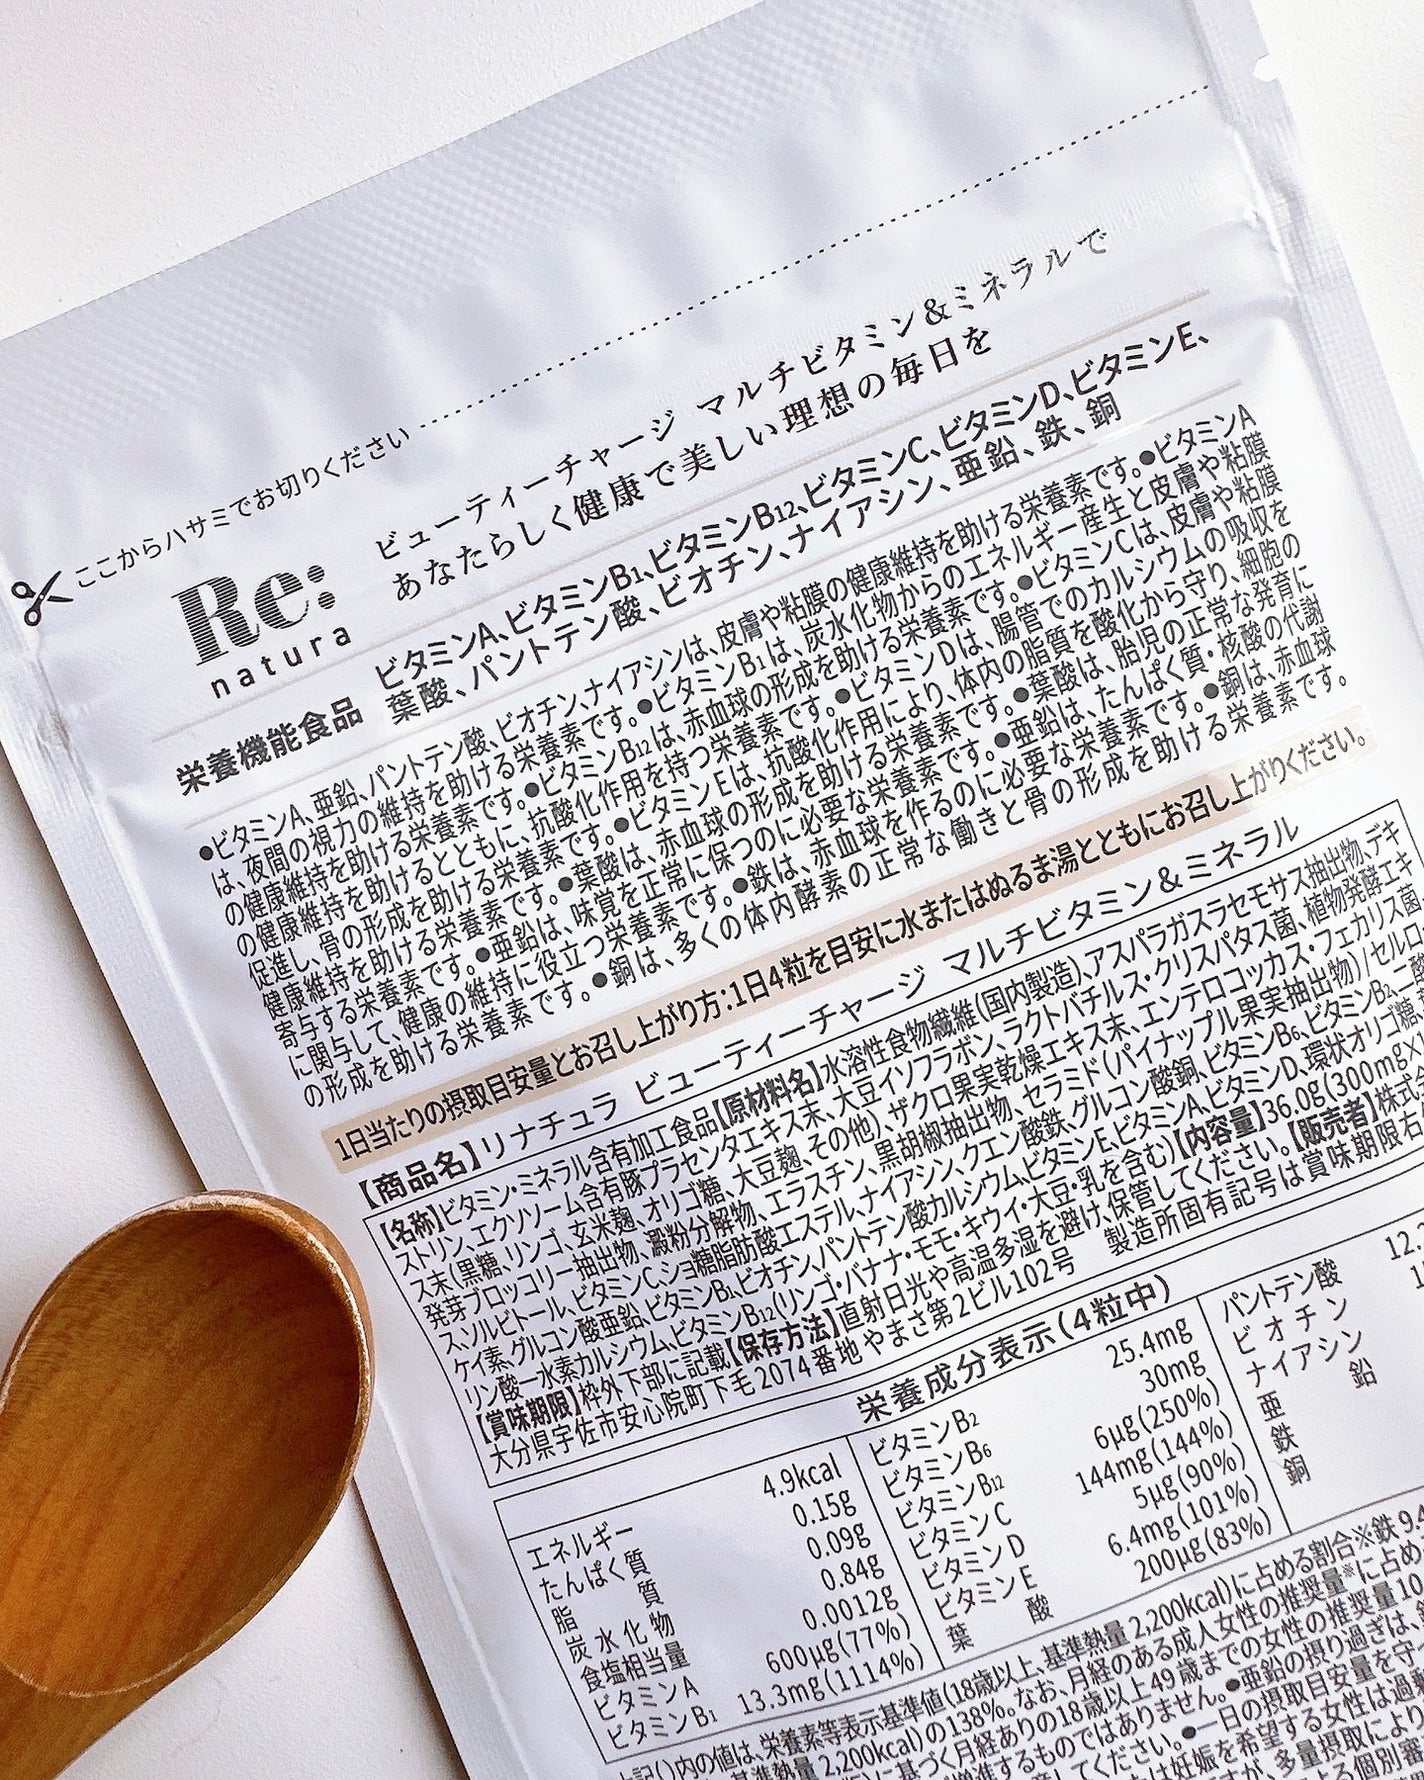 ここからハサミでお切りください
Re:
natura
ビューティーチャージ マルチビタミン&ミネラルで
あなたらしく健康で美しい理想の毎日を
栄養機能食品
ビタミンA、ビタミンB1、ビタミンB12、ビタミンC、ビタミンD、ビタミンE、
葉酸、パントテン酸、ビオチン、ナイアシン、亜鉛、鉄、銅
●ビタミンA、亜鉛、パントテン酸、ビオチン、ナイアシンは、皮膚や粘膜の健康維持を助ける栄養素です。●ビタミンA
は、夜間の視力の維持を助ける栄養素です。●ビタミンB1は、炭水化物からのエネルギー産生と皮膚や粘膜
の健康維持を助ける栄養素です。●ビタミンB12は、赤血球の形成を助ける栄養素です。●ビタミンCは、皮膚や粘膜
の健康維持を助けるとともに、抗酸化作用を持つ栄養素です。●ビタミンDは、腸管でのカルシウムの吸収を
促進し、骨の形成を助ける栄養素です。●ビタミンEは、抗酸化作用により、体内の脂質を酸化から守り、細胞の
健康維持を助ける栄養素です。●葉酸は、赤血球の形成を助ける栄養素です。●葉酸は、胎児の正常な発育に
寄与する栄養素です。●亜鉛は、味覚を正常に保つのに必要な栄養素です。●亜鉛は、たんぱく質・核酸の代謝
に関与して、健康の維持に役立つ栄養素です。●鉄は、赤血球を作るのに必要な栄養素です。●銅は、赤血球
の形成を助ける栄養素です。●銅は、多くの体内酵素の正常な働きと骨の形成を助ける栄養素です。
1日当たりの摂取目安量とお召し上がり方:1日4粒を目安に水またはぬるま湯とともにお召し上がりください。
【商品名】リナチュラ ビューティーチャージ マルチビタミン&ミネラル
【名称】ビタミン・ミネラル含有加工食品【原材料名】水溶性食物繊維(国内製造)、アスパラガスラセモサス抽出物、デキ
ストリン、エクソソーム含有豚プラセンタエキス末、大豆イソフラボン、ラクトバチルス・クリスパタス菌、植物発酵エキ
ス末(黒糖、リンゴ、玄米麹、オリゴ糖、大豆麹、その他)、ザクロ果実乾燥エキス末、エンテロコッカス・フェカリス菌、
発芽ブロッコリー抽出物、澱粉分解物、エラスチン、黒胡椒抽出物、セラミド(パイナップル果実抽出物)/セルロー
ス、ソルビトール、ビタミンC、ショ糖脂肪酸エステル、ナイアシン、クエン酸鉄、グルコン酸銅、ビタミンB6、ビタミンB2、二酸
ケイ素、グルコン酸亜鉛、ビタミンB1、ビオチン、パントテン酸カルシウム、ビタミンE、ビタミンA、ビタミンD、環状オリゴ糖、
リン酸一水素カルシウム、ビタミンB12(リンゴ・バナナ・モモ・キウイ・大豆・乳を含む)【内容量】36.0g(300mg×
【賞味期限】枠外下部に記載【保存方法】直射日光や高温多湿を避け、保管してください。【販売者】株式
大分県宇佐市安心院町下毛2074番地 やまさ第2ビル102号 製造所固有記号は賞味期限右
栄養成分表示(4粒中)
エネルギー 4.9kcal
たんぱく質 0.15g
脂質 0.09g
炭水化物 0.84g
食塩相当量 0.0012g
ビタミンA 600μg(77%)
ビタミンB1 13.3mg(1114%)
ビタミンB2 25.4mg
ビタミンB6 30mg
ビタミンB12 6μg(250%)
ビタミンC 144mg(144%)
ビタミンD 5μg(90%)
ビタミンE 6.4mg(101%)
葉酸 200μg(83%)
パントテン酸 12.
ビオチン
ナイアシン
亜鉛
鉄
銅
上記()内の値は、栄養素等表示基準値(18歳以上、基準熱量2,200kcal)に占める割合※鉄9.4
基準熱量2,200kcal)の138%。なお、月経のある成人女性の推奨量※に占め
に基づく月経ありの18歳以上49歳までの女性の推奨量10
増進するものではありません。●亜鉛の摂り過ぎは、
してください。●一日の摂取目安量を守
は妊娠を希望する女性は過剰
が、多量摂取により
個別審